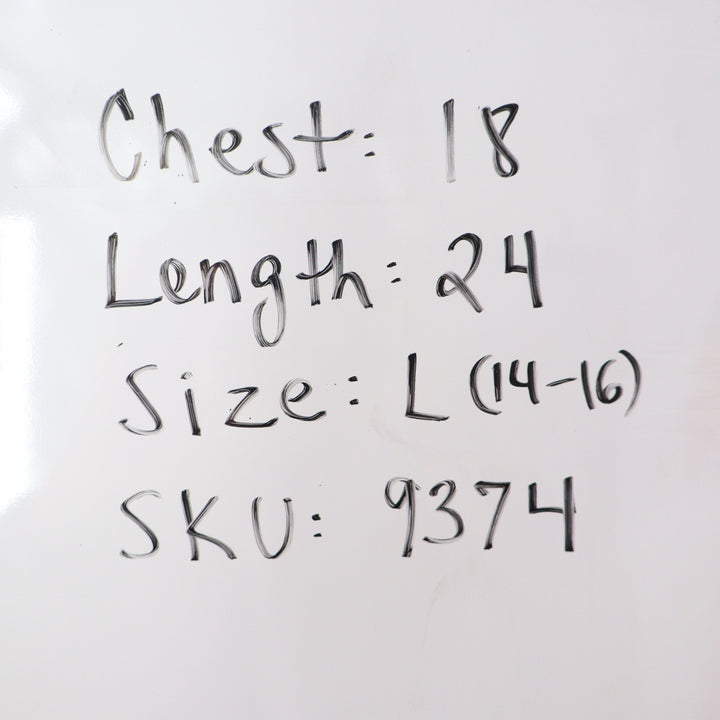 Chest: 18
Length: 24
Size: L (14-16)
SKU: 9374